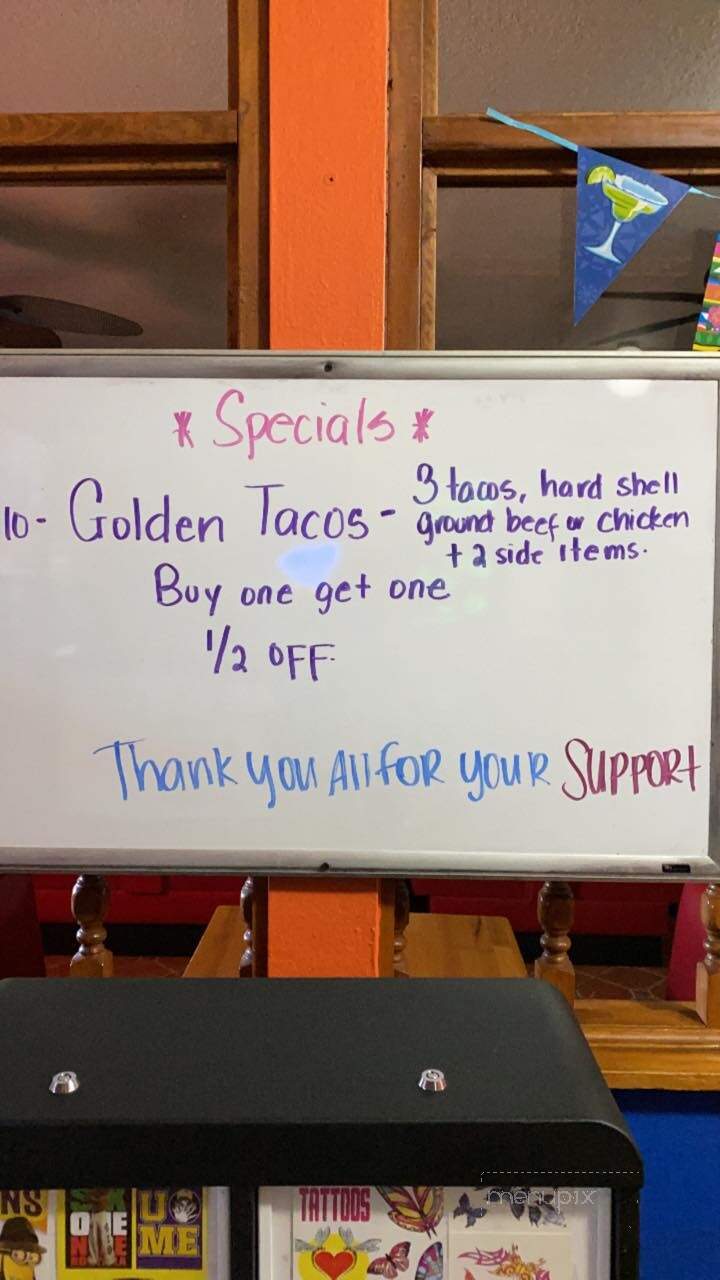 * Specials *
10- Golden Tacos - 3 tacos, hard shell
ground beef or chicken
+ 2 side items.
Buy one get one
1/2 OFF
Thank you All for your Support
TATTOOS
U
ME
menupix